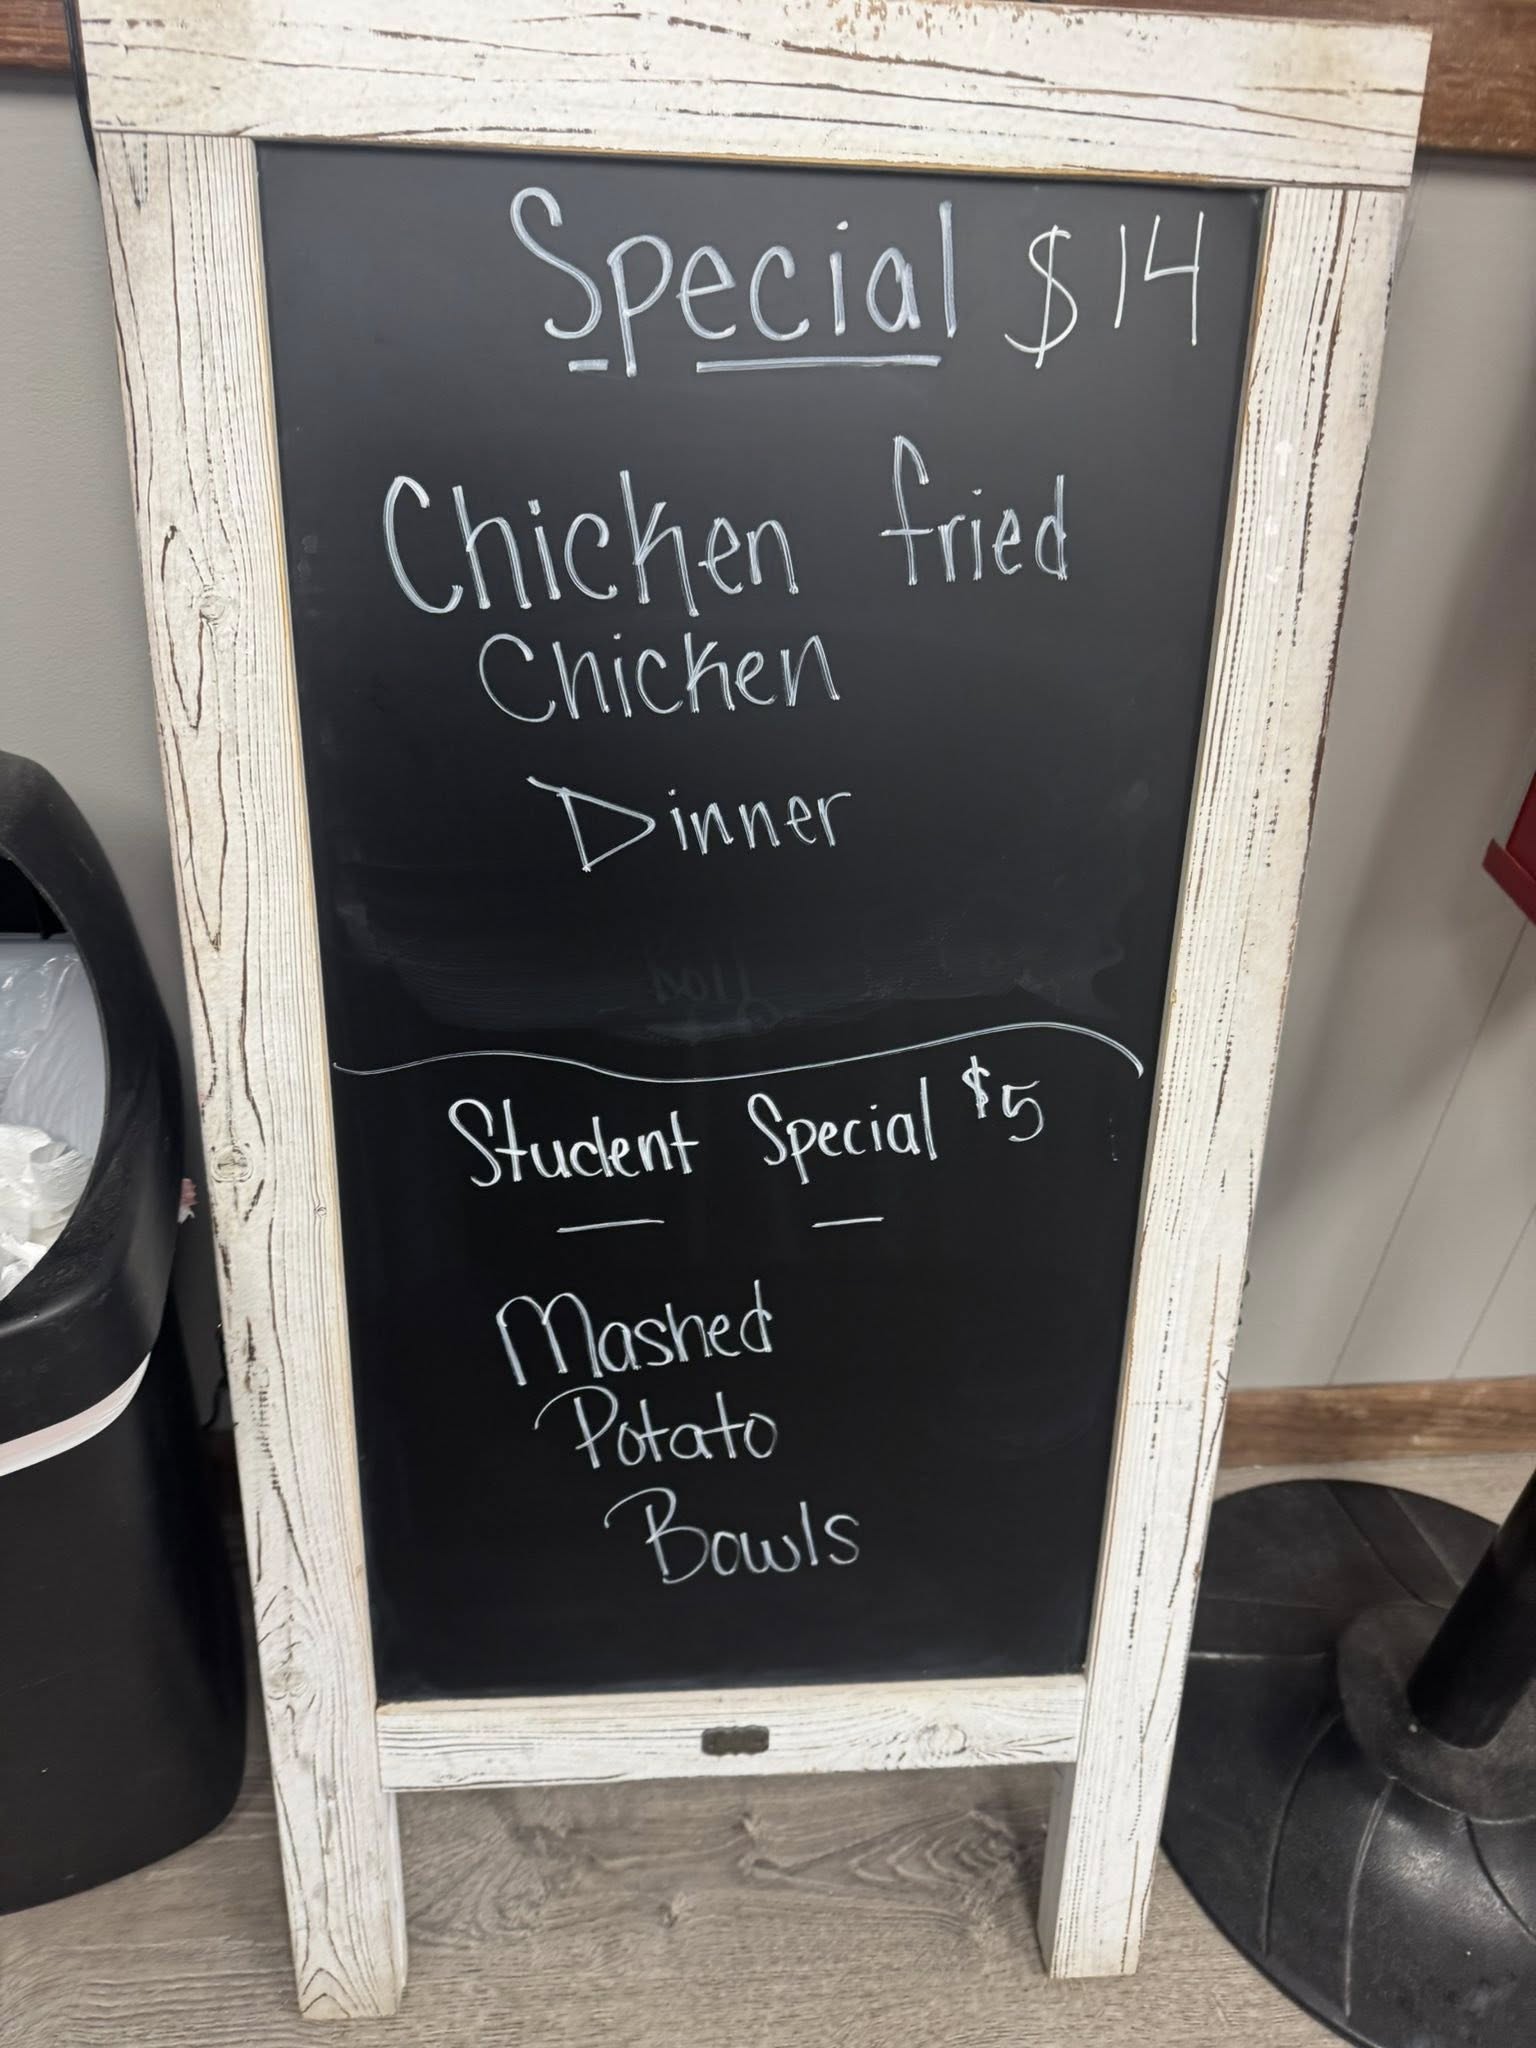 Special $14
Chicken fried
Chicken
Dinner
Student Special $5
Mashed
Potato
Bowls